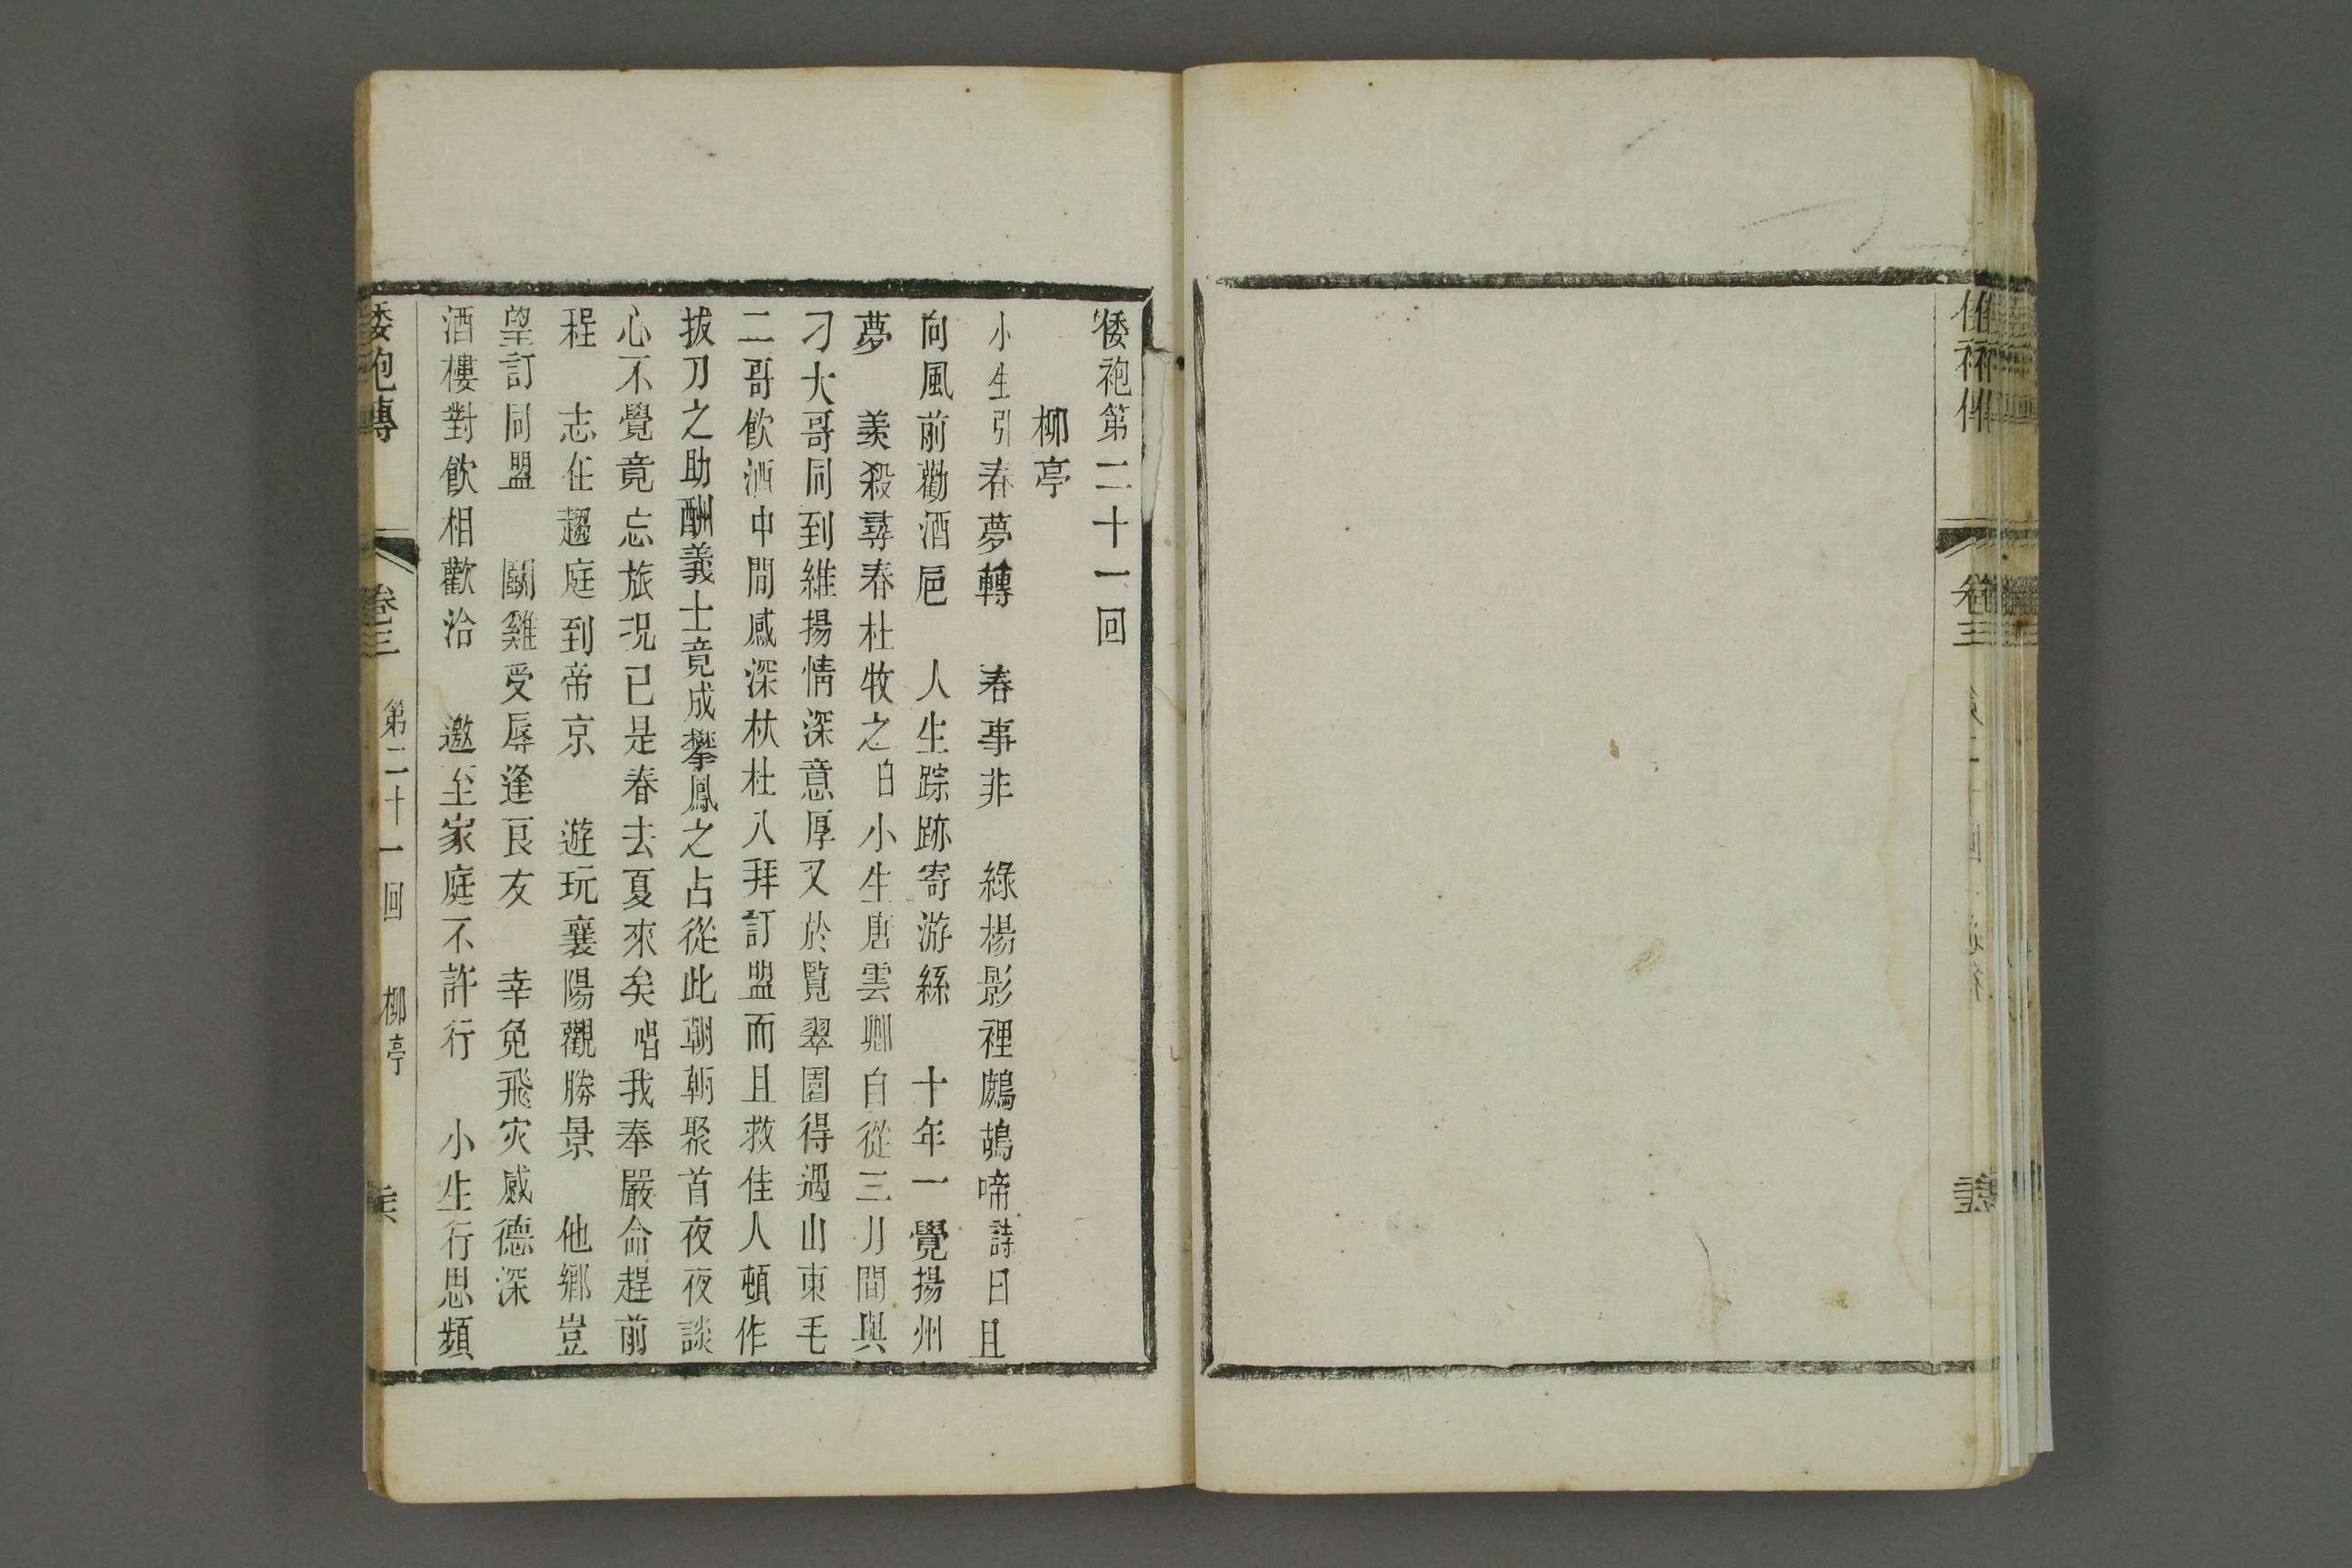 卷三
倭袍第二十一回
柳亭
小生引春夢轉　春事非　綠楊影裡鷓鴣啼詩曰且
向風前勸酒巵　人生踪跡寄游絲　十年一覺揚州
夢　羨殺尋春杜牧之白小生唐雲卿自從三月間與
刁大哥同到維揚情深意厚又於覧翠園得遇山東毛
二哥飲酒中間感深杕杜八拜訂盟而且救佳人頓作
拔刀之助酬義士竟成攀鳳之占從此朝朝聚首夜夜談
心不覺竟忘旅况已是春去夏來矣唱我奉嚴命趕前
程　志在趨庭到帝京　遊玩襄陽觀勝景　他鄉豈
望訂同盟　鬬雞受辱逢良友　幸免飛灾感德深
酒樓對飲相歡洽　邀至家庭不許行　小生行思頻
倭袍傳　卷三　第二十一回　柳亭